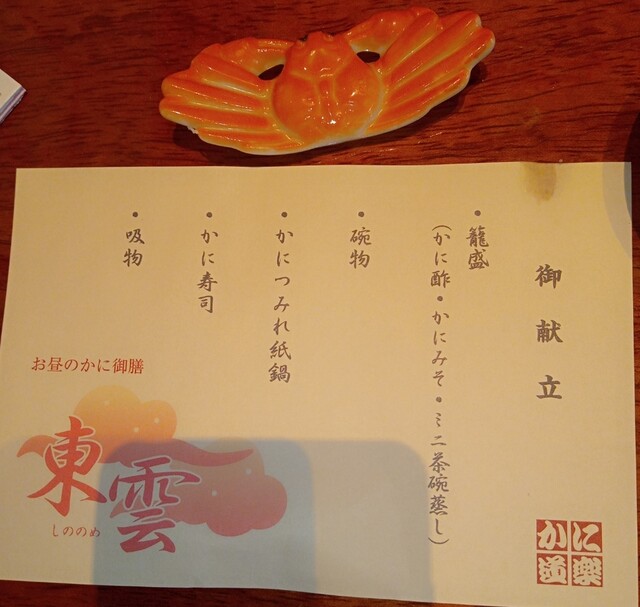 御献立
・籠盛
(かに酢・かにみそ・ミニ茶碗蒸し)
・碗物
・かにつみれ紙鍋
・かに寿司
・吸物
お昼のかに御膳
東雲
しののめ
かに
道楽